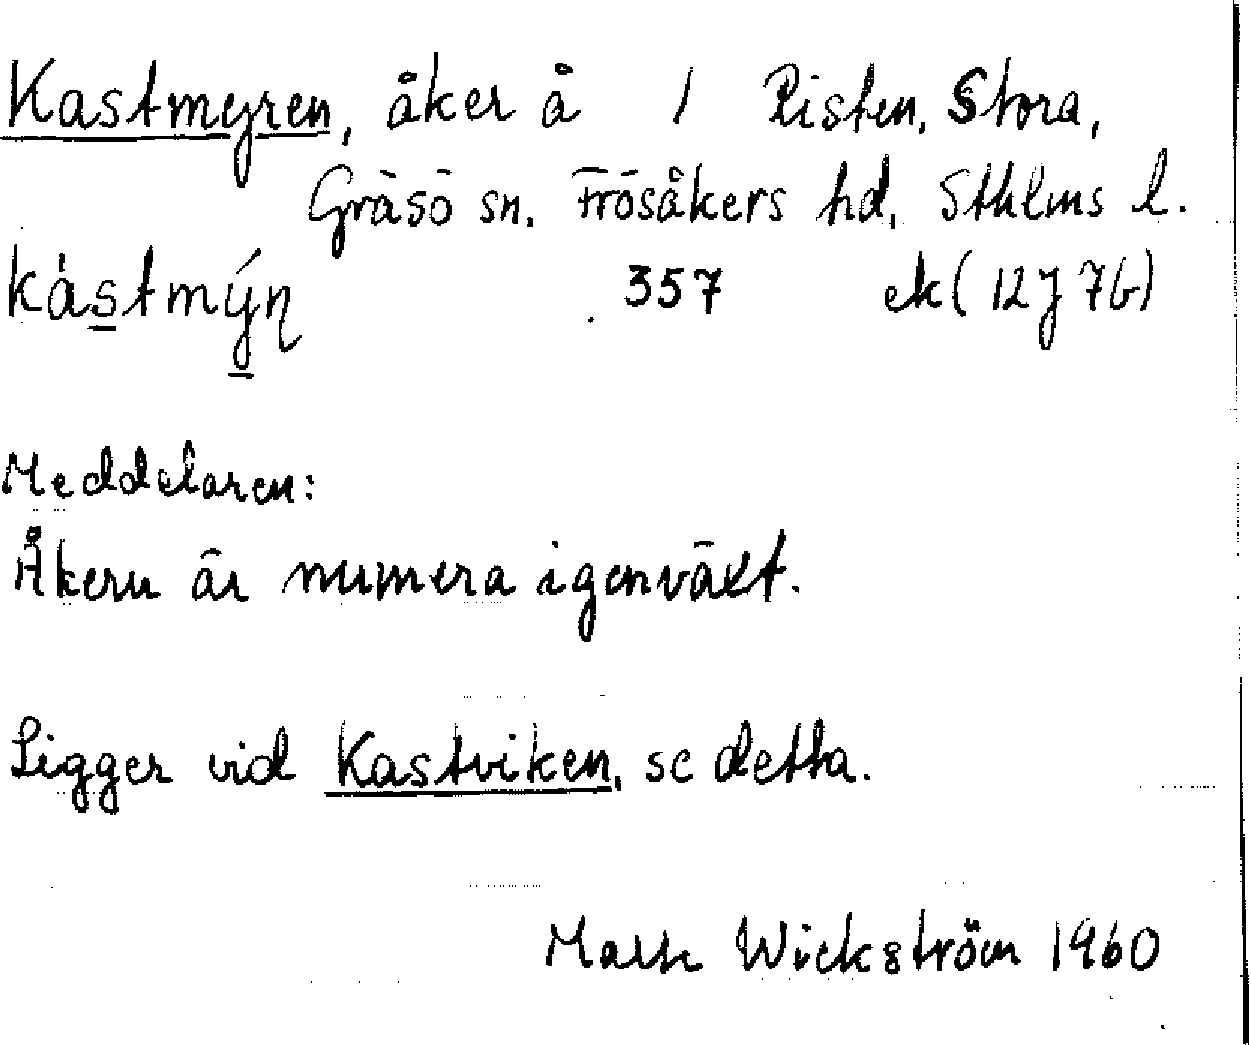 Kastmyren, åker å 1 Risten, Stora,
Gräsö sn. Frösåkers hd. Sthlms l.
kàstmýn 357 ek (12J 7b)
Meddelaren:
Åkern är numera igenväxt.
Ligger vid Kastviken, se detta.
Wickström 1960